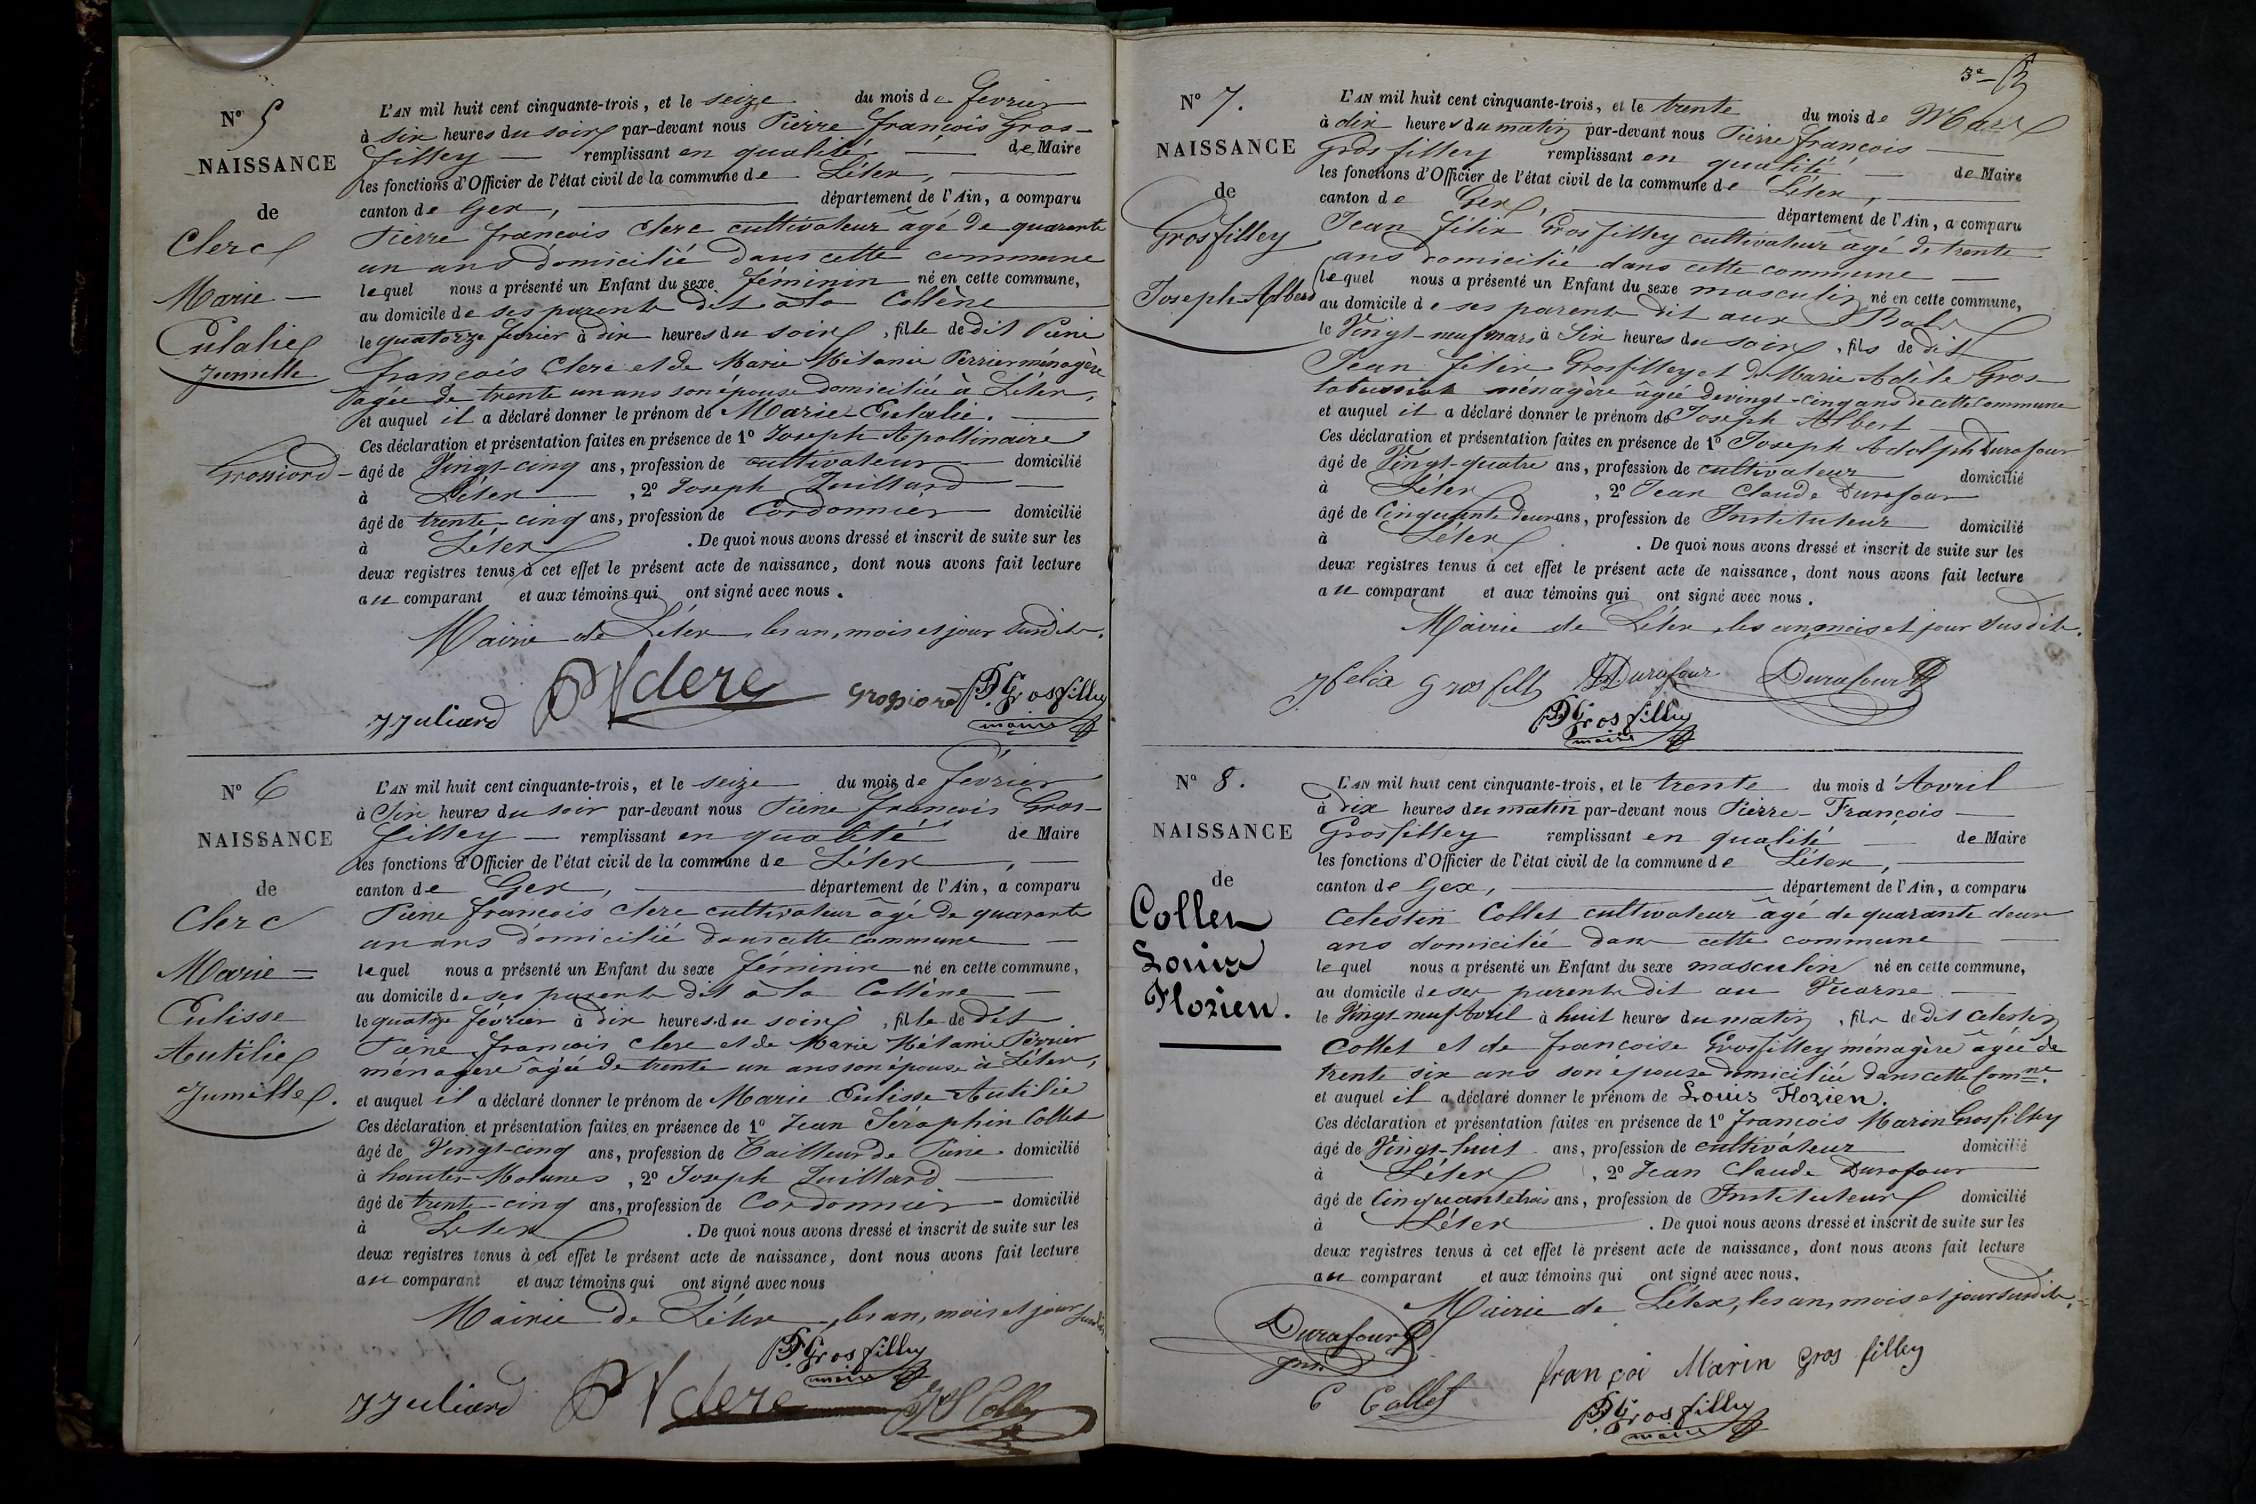 N° 5
NAISSANCE
de
Clerc
Marie —
Eulalie
Jumelle
Grossiord —
L'AN mil huit cent cinquante-trois, et le seize du mois de février
à six heures du soir par-devant nous Pierre françois Gros-
filley — remplissant en qualité — de Maire
les fonctions d'Officier de l'état civil de la commune de Lélex,
canton de Gex, département de l'Ain, a comparu
Pierre françois Clerc cultivateur âgé de quarante
un ans domicilié dans cette commune
lequel nous a présenté un Enfant du sexe féminin né en cette commune,
au domicile de ses parents dit à la
le quatorze février à dix heures du soir, fille de dit Pierre
françois Clerc et de Marie Mélanie Perrier ménagère
âgée de trente un ans son épouse domiciliée à Lélex,
et auquel il a déclaré donner le prénom de Marie Eulalie.
Ces déclaration et présentation faites en présence de 1° Joseph Apollinaire
âgé de Vingt-cinq ans, profession de cultivateur domicilié
à Lélex, 2° Joseph Juillard
âgé de trente-cinq ans, profession de Cordonnier domicilié
à Lélex. De quoi nous avons dressé et inscrit de suite sur les
deux registres tenus à cet effet le présent acte de naissance, dont nous avons fait lecture
au comparant et aux témoins qui ont signé avec nous.
Mairie de Lélex, les an, mois et jour susdits.
JJuliard PF clerc Grossiord PF Grosfilley
maire
N° 6
NAISSANCE
de
Clerc
Marie —
Eulisse
Autilie
Jumelle.
L'AN mil huit cent cinquante-trois, et le seize du mois de février
à Six heures du soir par-devant nous Pierre françois Gros-
filley — remplissant en qualité de Maire
les fonctions d'Officier de l'état civil de la commune de Lélex,
canton de Gex, département de l'Ain, a comparu
Pierre françois Clerc cultivateur âgé de quarante
un ans domicilié dans cette commune
lequel nous a présenté un Enfant du sexe féminin né en cette commune,
au domicile de ses parents dit à la
le quatorze février à dix heures du soir, fille de dit
Pierre françois Clerc et de Marie Mélanie Perrier
ménagère âgée de trente un ans son épouse à Lélex,
et auquel il a déclaré donner le prénom de Marie Eulisse Autilie
Ces déclaration et présentation faites en présence de 1° Jean Séraphin Collet
âgé de Vingt-cinq ans, profession de Tailleur de Pierre domicilié
à hautes-Molunes, 2° Joseph Juillard
âgé de trente-cinq ans, profession de Cordonnier domicilié
à Lélex. De quoi nous avons dressé et inscrit de suite sur les
deux registres tenus à cet effet le présent acte de naissance, dont nous avons fait lecture
au comparant et aux témoins qui ont signé avec nous
Mairie de Lélex, les an, mois et jour susdits
PF Grosfilley
maire
JJuliard PF clerc JS Collet
3e
N° 7.
NAISSANCE
de
Grosfilley
Joseph Albert
L'AN mil huit cent cinquante-trois, et le trente du mois de Mars
à dix heures du matin par-devant nous Pierre françois
Grosfilley remplissant en qualité — de Maire
les fonctions d'Officier de l'état civil de la commune de Lélex,
canton de Gex, département de l'Ain, a comparu
Jean félix Grosfilley cultivateur âgé de trente
ans domicilié dans cette commune
lequel nous a présenté un Enfant du sexe masculin né en cette commune,
au domicile de ses parents dit aux
le Vingt-neuf mars à Six heures du soir, fils de dit
Jean félix Grosfilley et de Marie Adèle Gros-
ménagère âgée de vingt-cinq ans de cette commune
et auquel il a déclaré donner le prénom de Joseph Albert
Ces déclaration et présentation faites en présence de 1° Joseph Adolph Durafour
âgé de Vingt-quatre ans, profession de cultivateur domicilié
à Lélex, 2° Jean Claude Durafour
âgé de Cinquante deux ans, profession de Instituteur domicilié
à Lélex. De quoi nous avons dressé et inscrit de suite sur les
deux registres tenus à cet effet le présent acte de naissance, dont nous avons fait lecture
au comparant et aux témoins qui ont signé avec nous.
Mairie de Lélex, les an, mois et jour susdits.
J felix Grosfilly Durafour Durafour
PF Grosfilley
maire
N° 8.
NAISSANCE
de
Collet
Louis
Florien.
L'AN mil huit cent cinquante-trois, et le trente du mois d'Avril
à dix heures du matin par-devant nous Pierre-François
Grosfilley remplissant en qualité — de Maire
les fonctions d'Officier de l'état civil de la commune de Lélex,
canton de Gex, département de l'Ain, a comparu
Celestin Collet cultivateur âgé de quarante deux
ans domicilié dans cette commune
lequel nous a présenté un Enfant du sexe masculin né en cette commune,
au domicile de ses parents dit au
le Vingt neuf Avril à huit heures du matin, fils de dit Celestin
Collet et de françoise Grosfilley ménagère âgée de
trente six ans son épouse domiciliée dans cette Comne.
et auquel il a déclaré donner le prénom de Louis Florien.
Ces déclaration et présentation faites en présence de 1° françois Marin Grosfilley
âgé de Vingt-huit ans, profession de cultivateur domicilié
à Lélex, 2° Jean Claude Durafour
âgé de Cinquante trois ans, profession de Instituteur domicilié
à Lélex. De quoi nous avons dressé et inscrit de suite sur les
deux registres tenus à cet effet le présent acte de naissance, dont nous avons fait lecture
au comparant et aux témoins qui ont signé avec nous.
Mairie de Lélex, les an, mois et jour susdits.
Durafour
françoi Marin Gros filley
C Collet
PF Grosfilley
maire